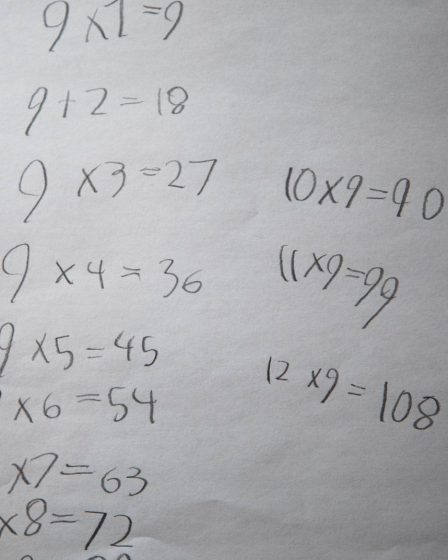 9 x 1 = 9
9 + 2 = 18
9 x 3 = 27
9 x 4 = 36
9 x 5 = 45
x 6 = 54
x 7 = 63
x 8 = 72
10 x 9 = 90
11 x 9 = 99
12 x 9 = 108